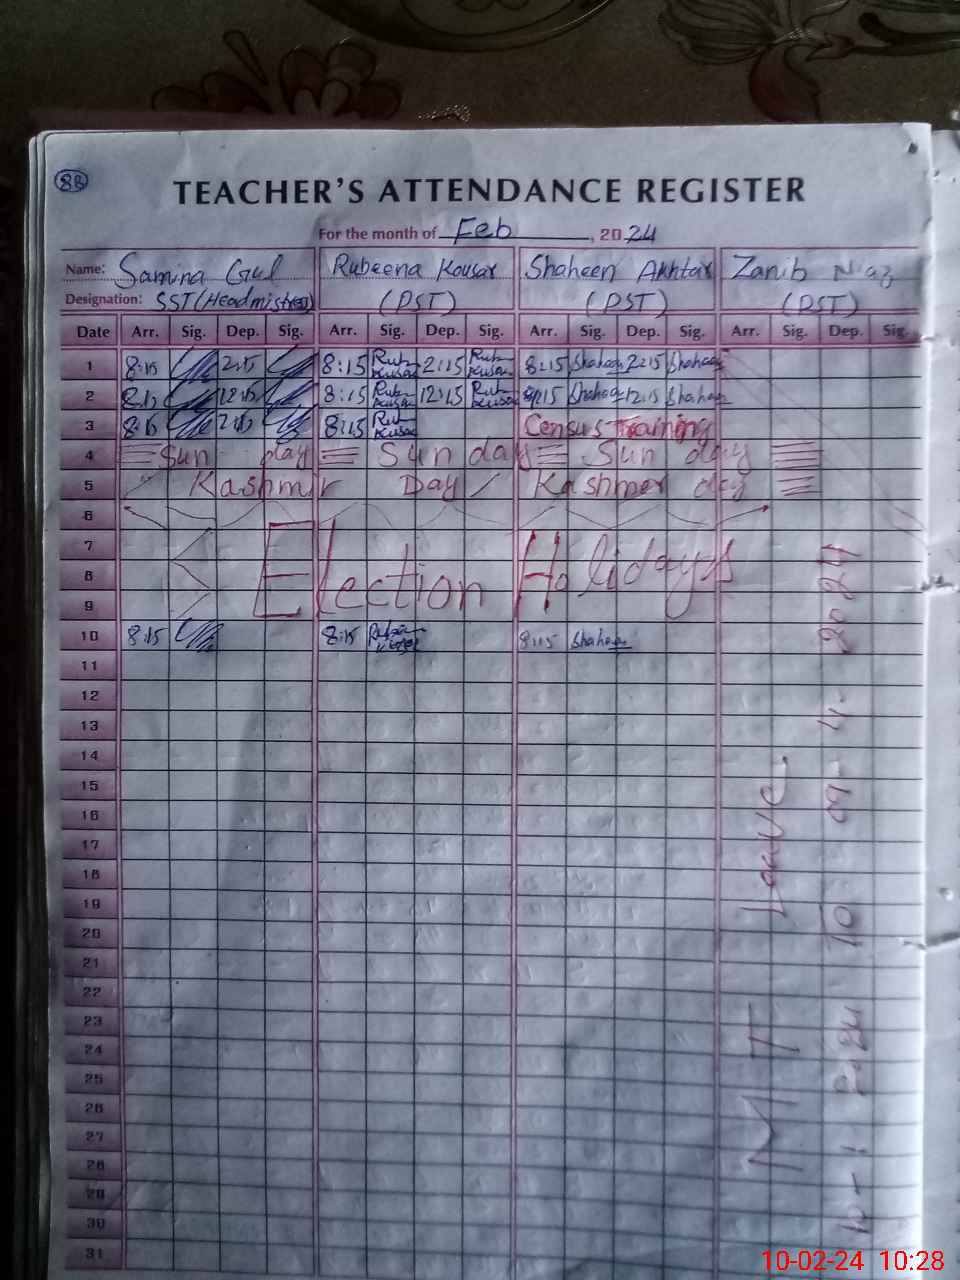 88
TEACHER'S ATTENDANCE REGISTER
For the month of Feb, 2024
Name: Samina Gul Rubeena Kousar Shaheen Akhtar Zanib Niaz
Designation: SST (Headmistress) (PST) (PST) (PST)
Date Arr. Sig. Dep. Sig. Arr. Sig. Dep. Sig. Arr. Sig. Dep. Sig. Arr. Sig. Dep. Sig.
1 8:15 2:15 8:15 Rub Kusar 2:15 Rub Kusar 8:15 Shaheen 2:15 Shaheen
2 8:15 12:15 8:15 Rub Kusar 12:15 Rub Kusar 8:15 Shaheen 12:15 Shaheen
3 8:15 2:15 8:15 Rub Kusar Census Training
4 Sun day Sunday Sun day
5 Kashmir Day Kashmer day
6
7 Election Holidays
8
9
10 8:15 8:15 8:15 Shaheen
11
12
13
14
15
16
17
18
19
20
21
22
23
24
25
26
27
28
29
30
31
M T Leave
To 09-4-2024
10-02-24 10:28